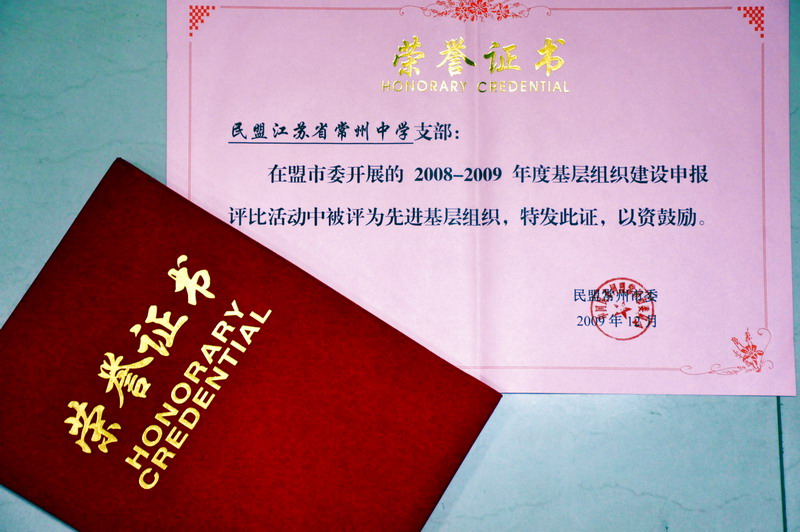 荣誉证书
HONORARY CREDENTIAL
民盟江苏省常州中学支部：
在盟市委开展的 2008-2009 年度基层组织建设申报
评比活动中被评为先进基层组织，特发此证，以资鼓励。
民盟常州市委
2009年12月
荣誉证书
HONORARY
CREDENTIAL